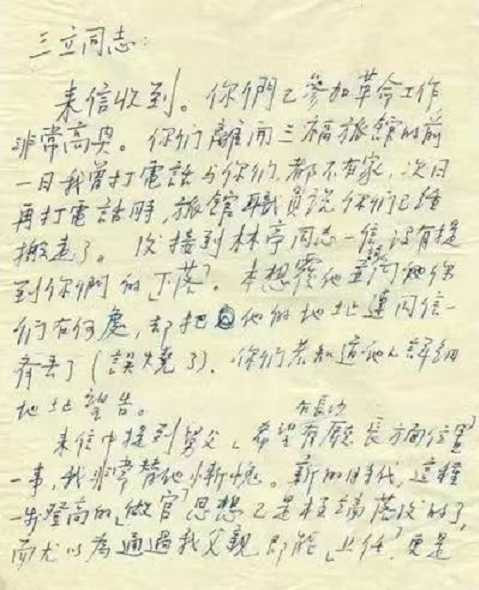 三立同志:
来信收到。你們已參加革命工作
非常高興。你们離開三福旅館的前
一日我曾打電話与你们,都不在家,次日
再打電話時,旅館職員說你们已經
搬走了。後接到林亭同志一信,没有提
到你們的「下落」。本想覆他並詢問他你
们在何處,却把他的地址連同信一
齊丢了(誤燒了)。你们若知道他的詳細
地址望告。
来信中提到舅父「希望在長沙有廳長方面位置」
一事,我非常替他慚愧。新的時代,這種
一步登高的「做官」思想已是極端落後的了,
而尤以為通過我父親即能「上任」,更是